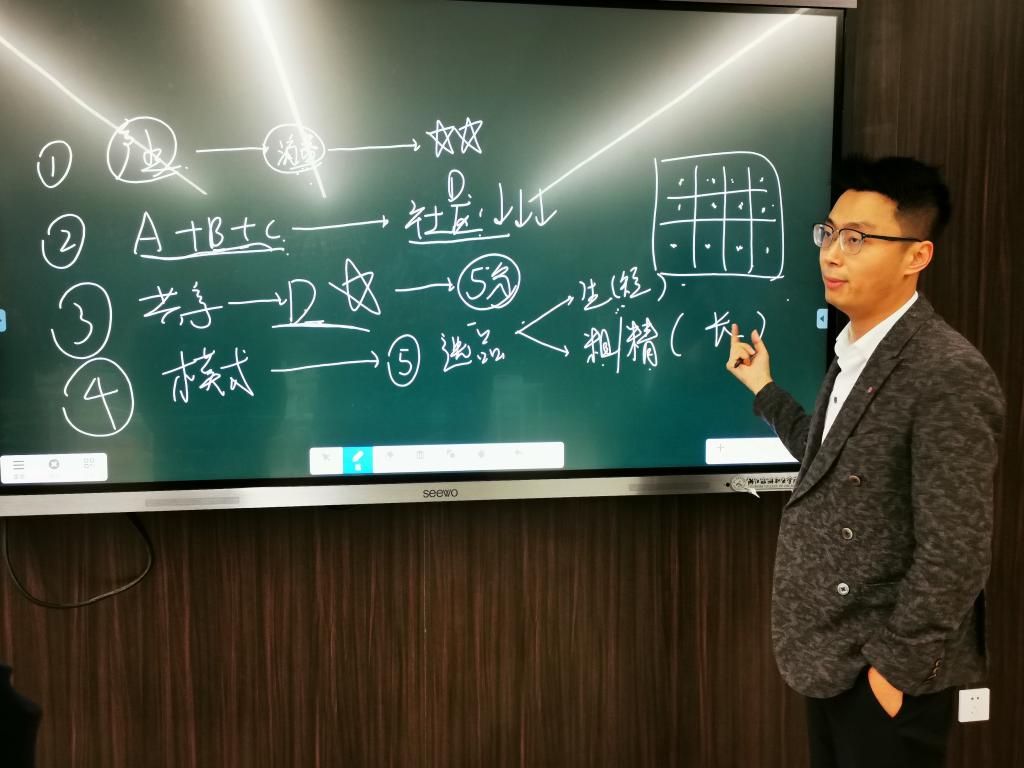 ① 产业 → 消费 → ☆☆
② A+B+C → 社区 D ↓↓↓
③ 共享 → D ☆ → 5分
④ 模式 → ⑤ 选品
生(短)
粗/精(长)
seewo